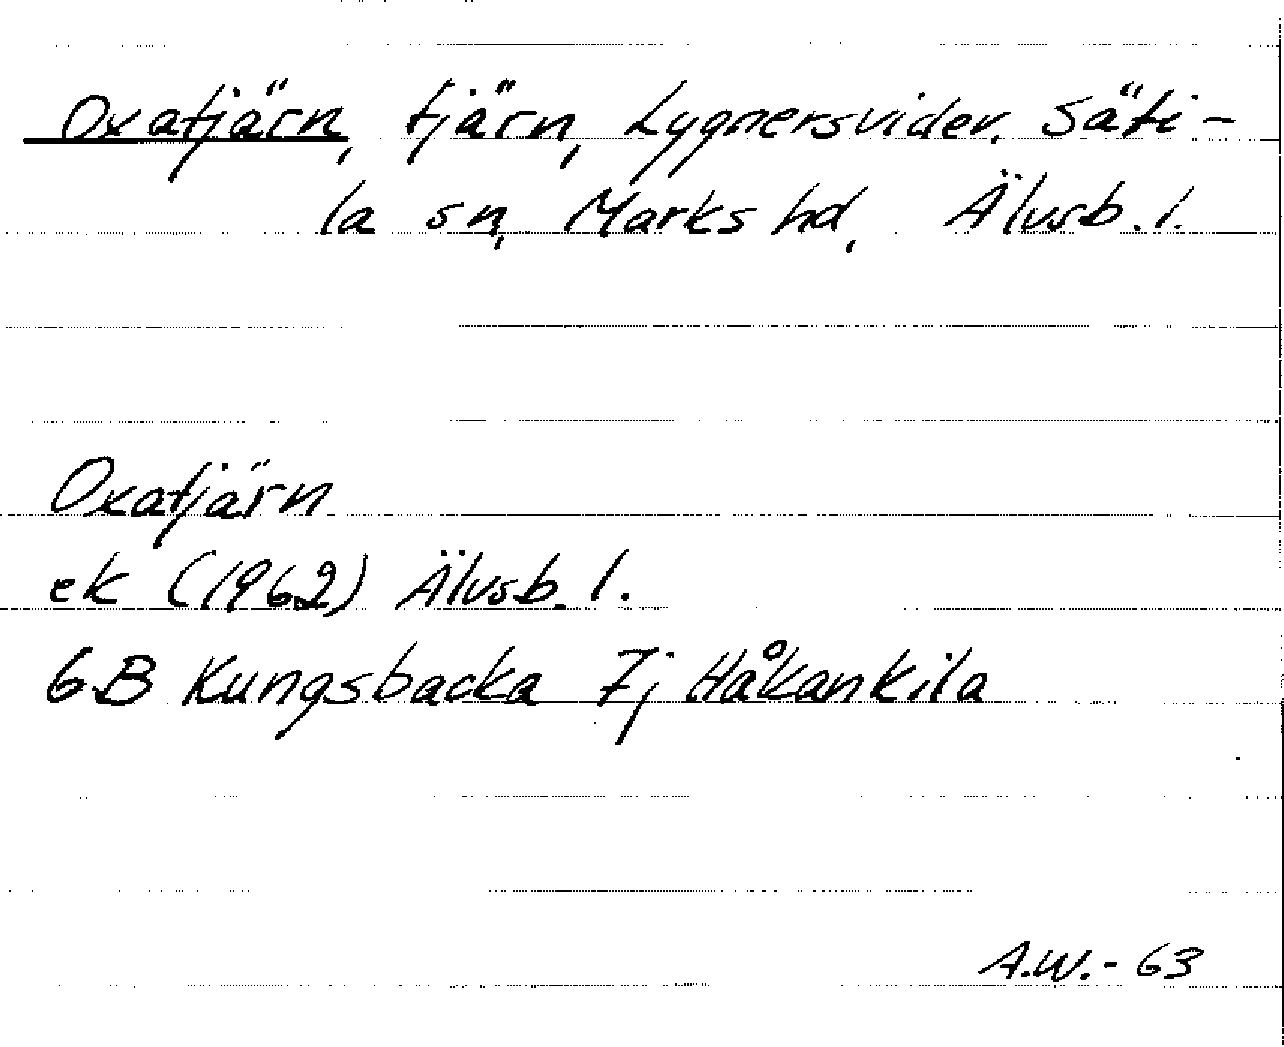 Oxatjärn, tjärn, Lygnersvider, Säti-
la sn, Marks hd, Älvsb. l.
Oxatjärn
ek (1962) Älvsb. l.
6B Kungsbacka 7j Håkankila
A.W.-63